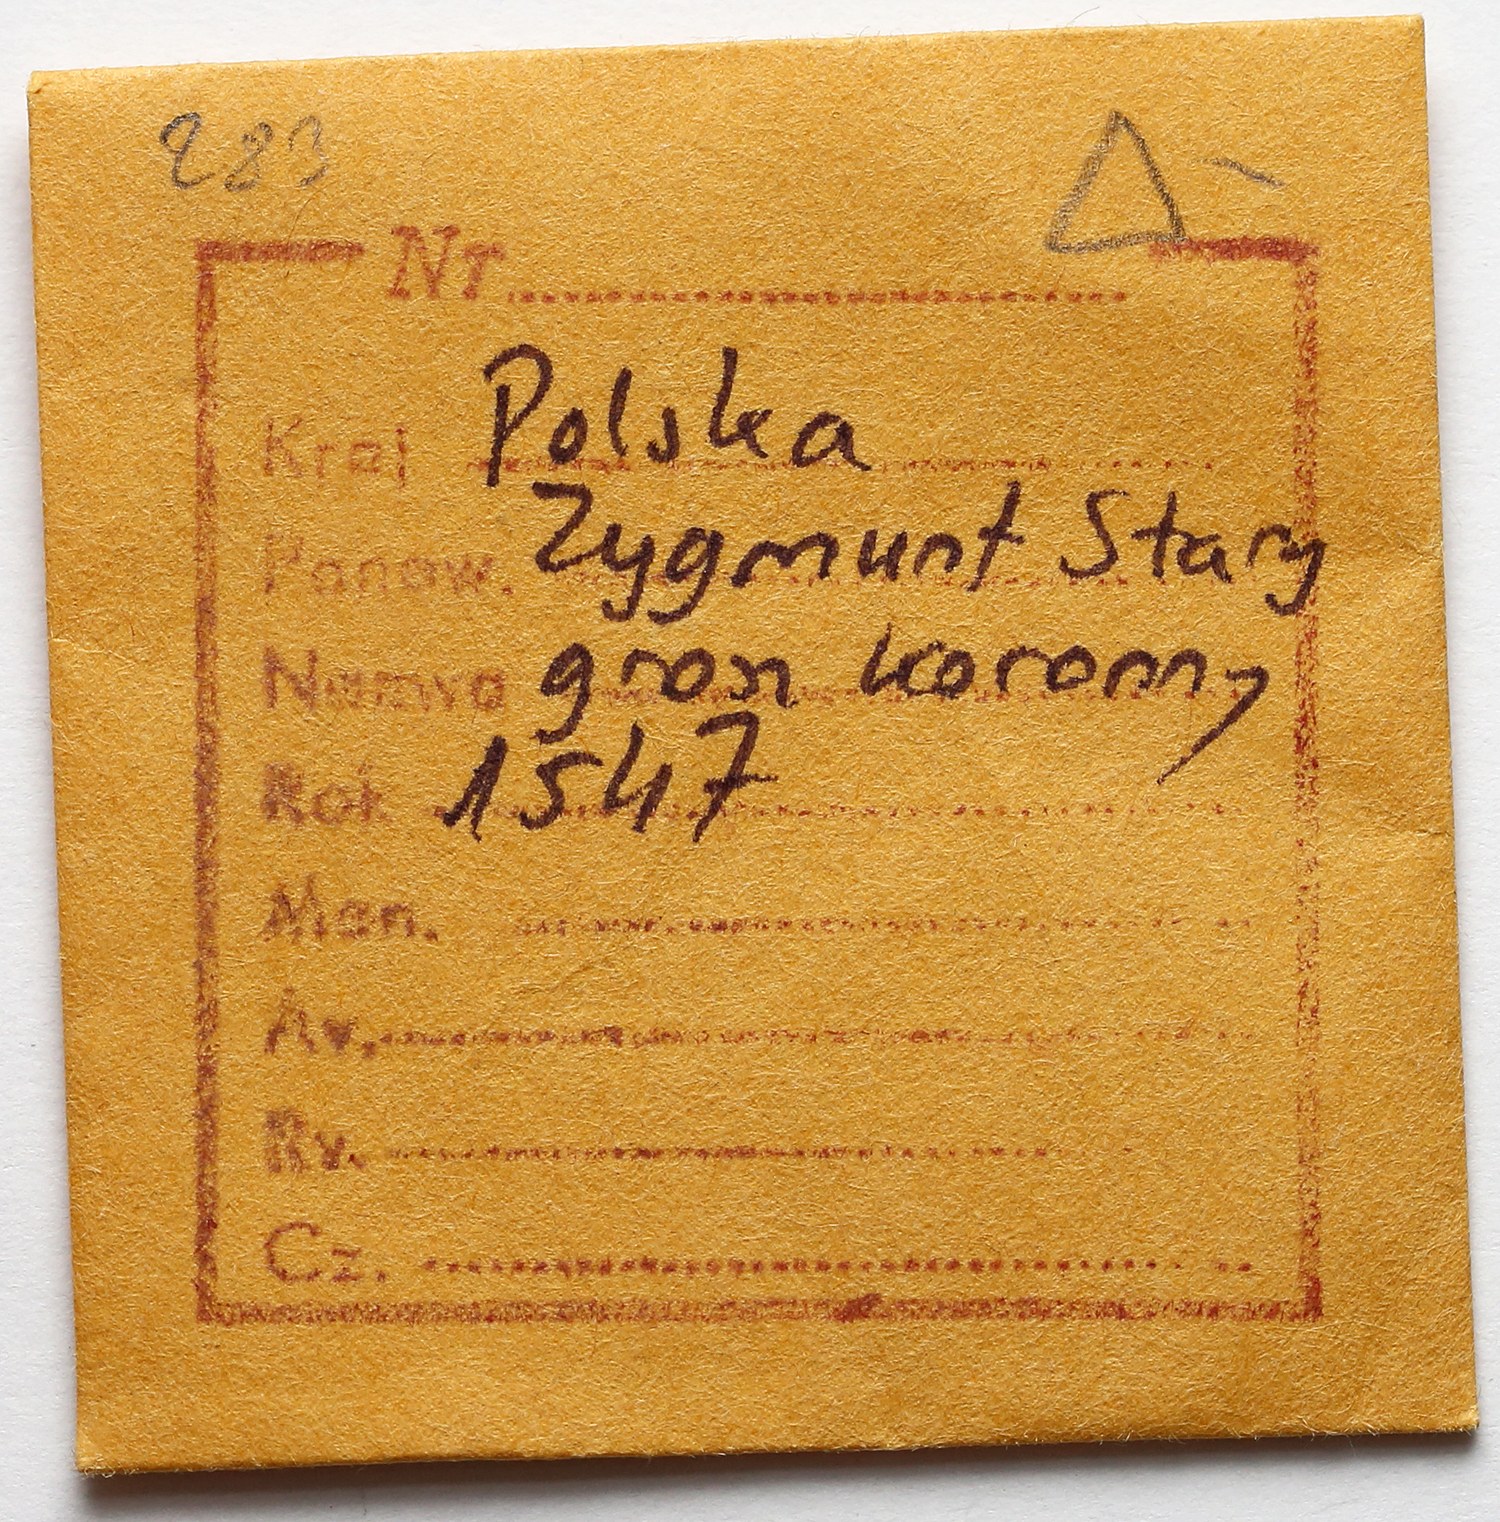 283
Nr
Kraj Polska
Panow. Zygmunt Stary
Nazwa grosz koronny
Rok 1547
Men.
Av.
Rv.
Cz.